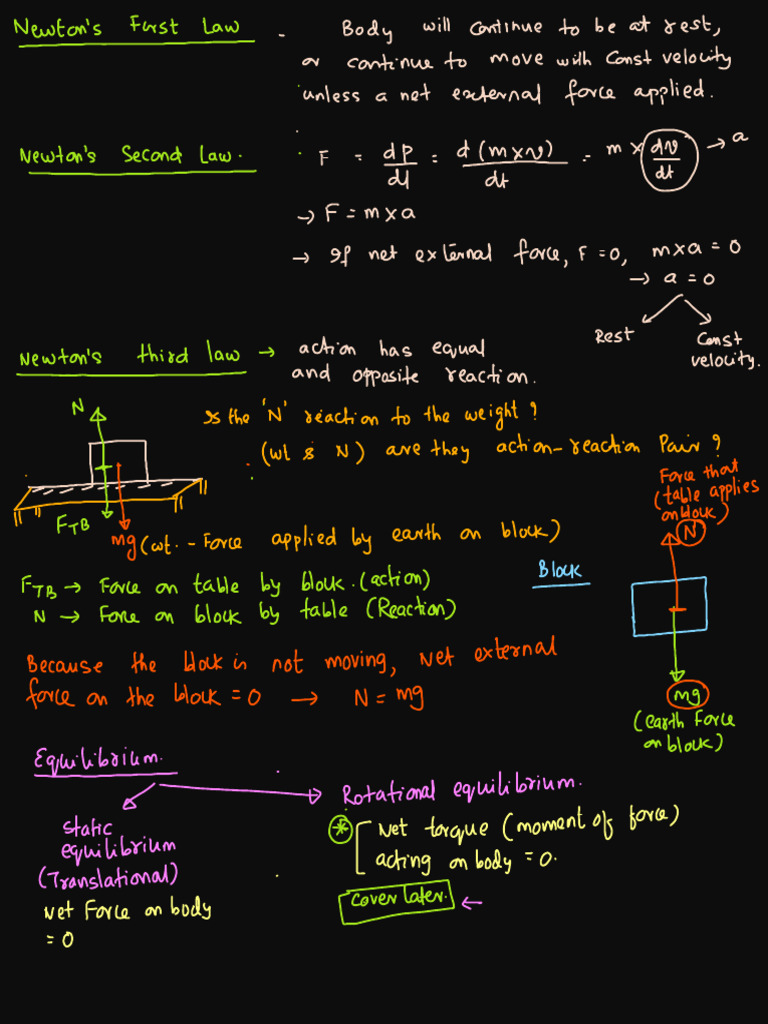 Newton's First Law - Body will continue to be at rest,
or continue to move with const velocity
unless a net external force applied.
Newton's Second Law. F = dp/dt = d(m×v)/dt = m × dv/dt → a
→ F = m×a
→ If net external force, F=0, m×a = 0
→ a = 0
Rest
Const velocity.
Newton's third law → action has equal
and opposite reaction.
N
Is the 'N' reaction to the weight?
(wt & N) are they action-reaction Pair?
FTB
mg (wt. - Force applied by earth on block)
Force that
(table applies
on block)
N
FTB → Force on table by block. (action)
N → Force on block by table (Reaction)
Block
Because the block is not moving, Net external
force on the block = 0 → N = mg
mg
(earth force
on block)
Equilibrium.
→ Rotational equilibrium.
static
equilibrium
(Translational)
Net Force on body
= 0
* Net torque (moment of force)
acting on body = 0.
Cover later. ←